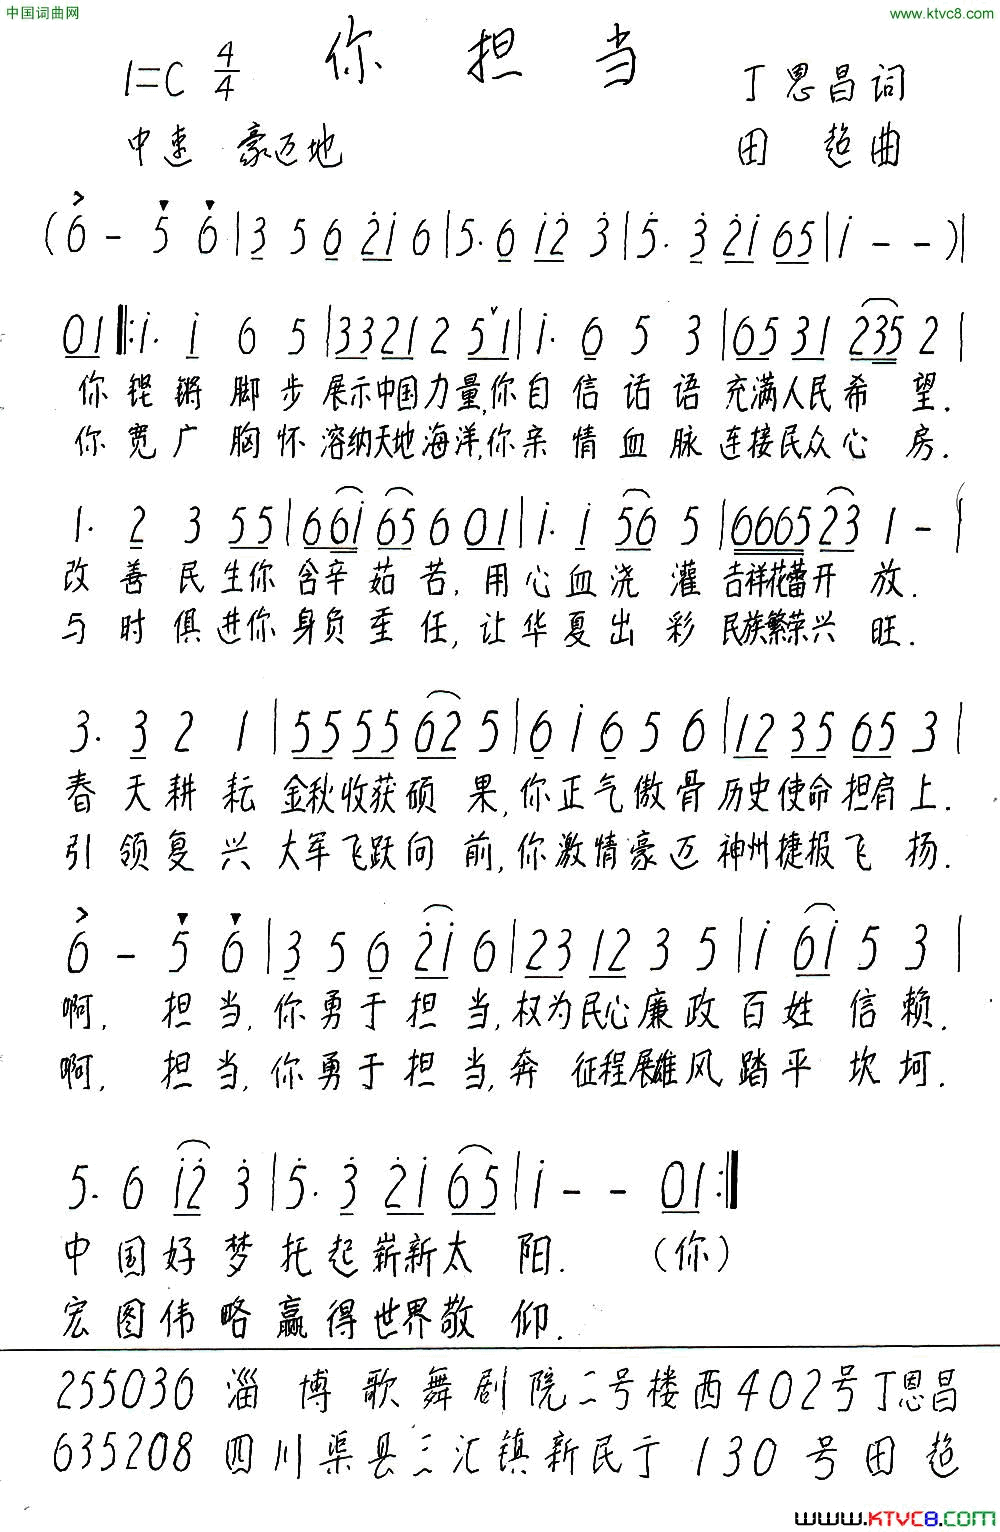 中国词曲网 www.ktvc8.com
你 担 当
1=C 4/4 丁恩昌词
中速 豪迈地 田 超曲
(6 - 5 6 | 3 5 6 2̇1̇ 6 | 5. 6 1̇2̇ 3̇ | 5. 3̇ 2̇1̇ 65 | 1̇ - - ) |
01 ‖: 1̇. 1̇ 6 5 | 3321 2 5ˇ1 | 1̇. 6 5 3 | 6531 235 2 |
你 铿 锵 脚 步 展示中国力量,你自 信 话 语 充满人民希 望.
你 宽 广 胸 怀 溶纳天地海洋,你亲 情 血 脉 连接民众心 房.
1. 2 3 55 | 661̇ 65 6 01 | 1̇. 1̇ 56 5 | 666523 1 - |
改 善 民 生你 含辛 茹 苦, 用 心 血 浇 灌 吉祥花蕾开 放.
与 时 俱 进你 身负 重 任, 让 华 夏 出 彩 民族繁荣兴 旺.
3. 3 2 1 | 5555 62 5 | 6 1̇ 6 5 6 | 12 35 65 3 |
春 天 耕 耘 金秋收获硕 果,你正气傲骨 历史使命担肩上.
引 领 复 兴 大军飞跃向 前,你激情豪迈 神州捷报飞 扬.
6 - 5 6 | 3 5 6 2̇1̇ 6 | 23 12 3 5 | 1̇ 61̇ 5 3 |
啊, 担 当,你勇于 担 当,权为民心廉 政 百 姓 信 赖.
啊, 担 当,你勇于 担 当,奔 征程展雄风 踏 平 坎 坷.
5. 6 1̇2̇ 3̇ | 5. 3̇ 2̇1̇ 65 | 1̇ - - 01 :‖
中 国 好 梦 托 起 崭新太 阳. (你)
宏 图 伟 略 赢 得 世界敬 仰.
255036 淄 博 歌 舞 剧 院二号楼西402号丁恩昌
635208 四川渠县三汇镇新民于 130 号 田 超
www.KTVC8.com